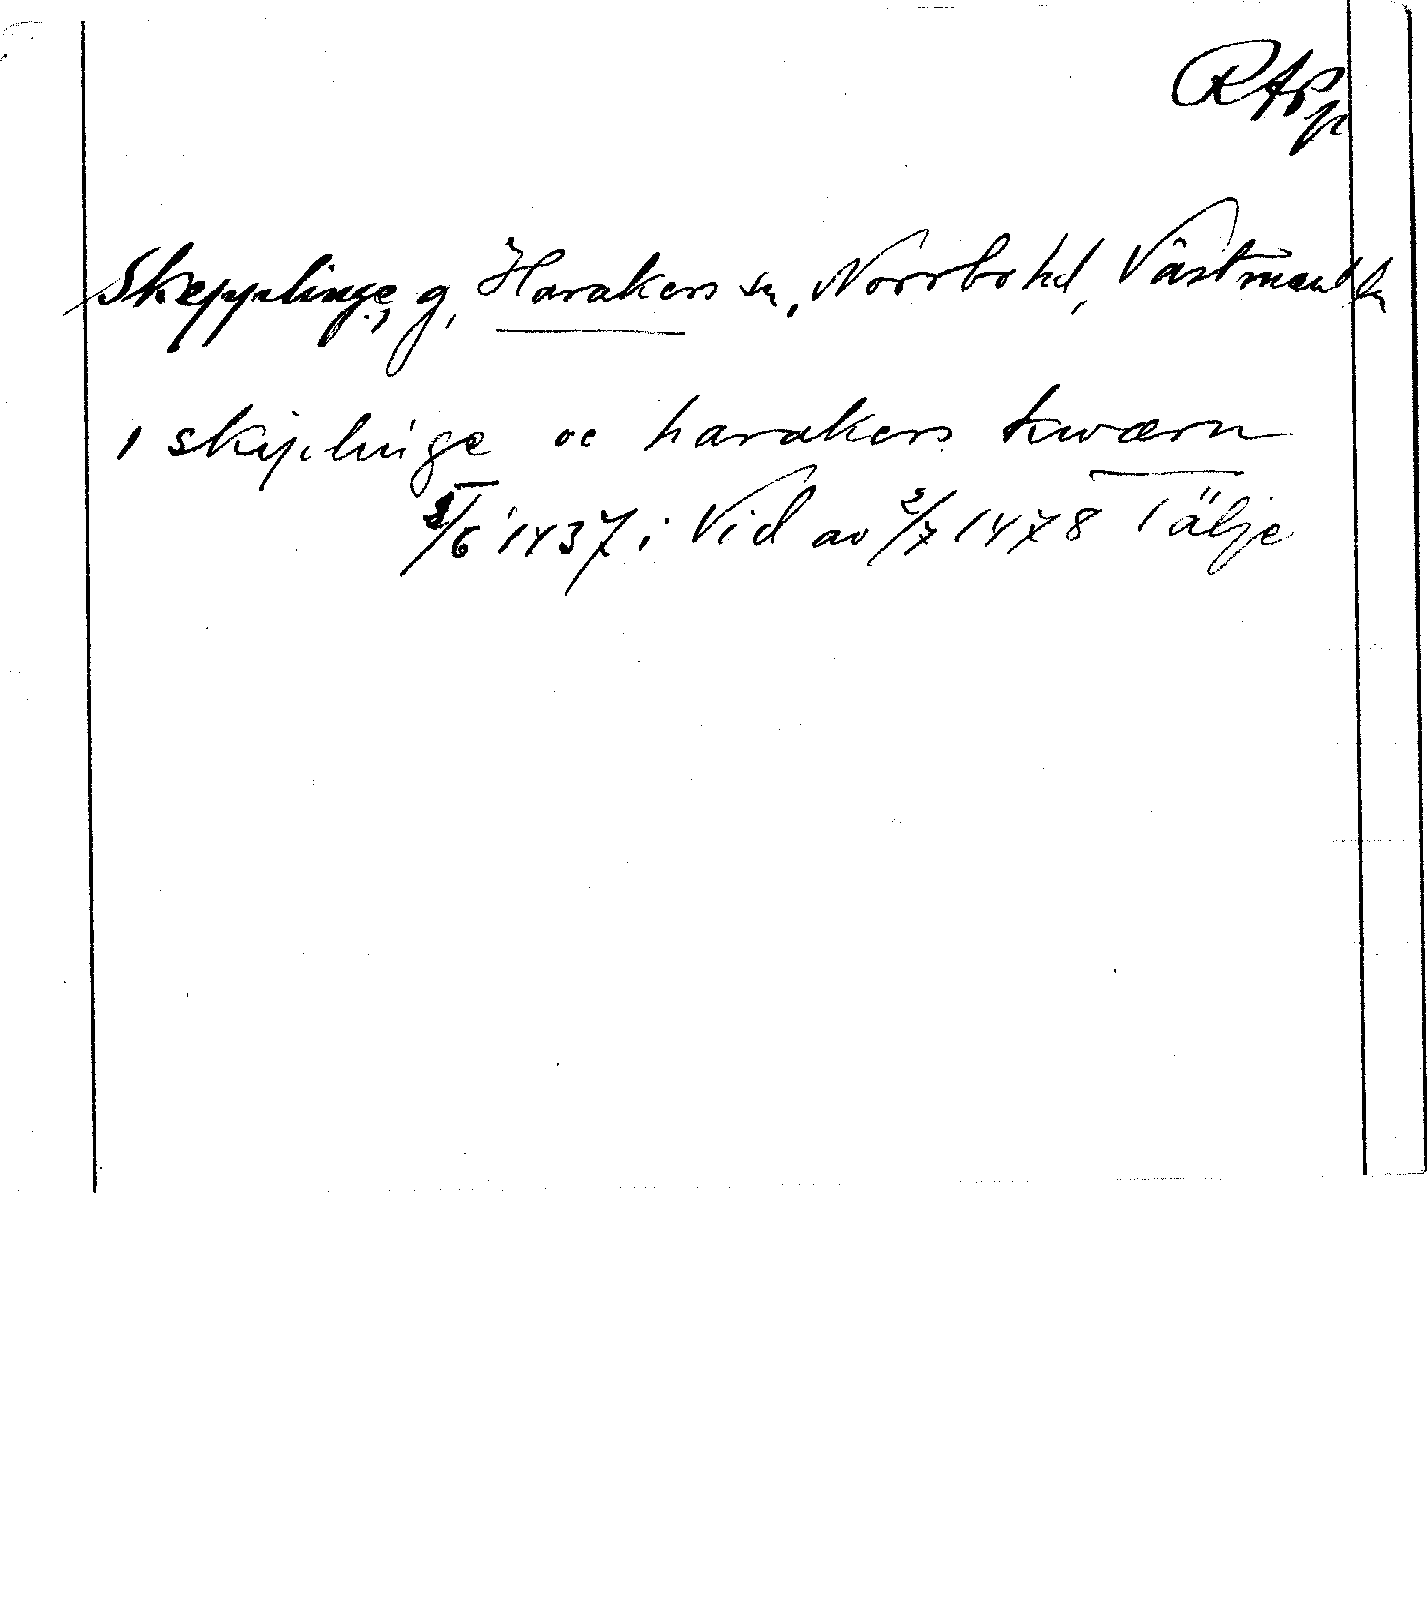 RAPp
Skepplinge, g, Harakers sn, Norrbo hd, Västmanl ln
1 skiplinge oc harakers kwærn
5/6 1437 i Vid av 2/7 1478 Tälje